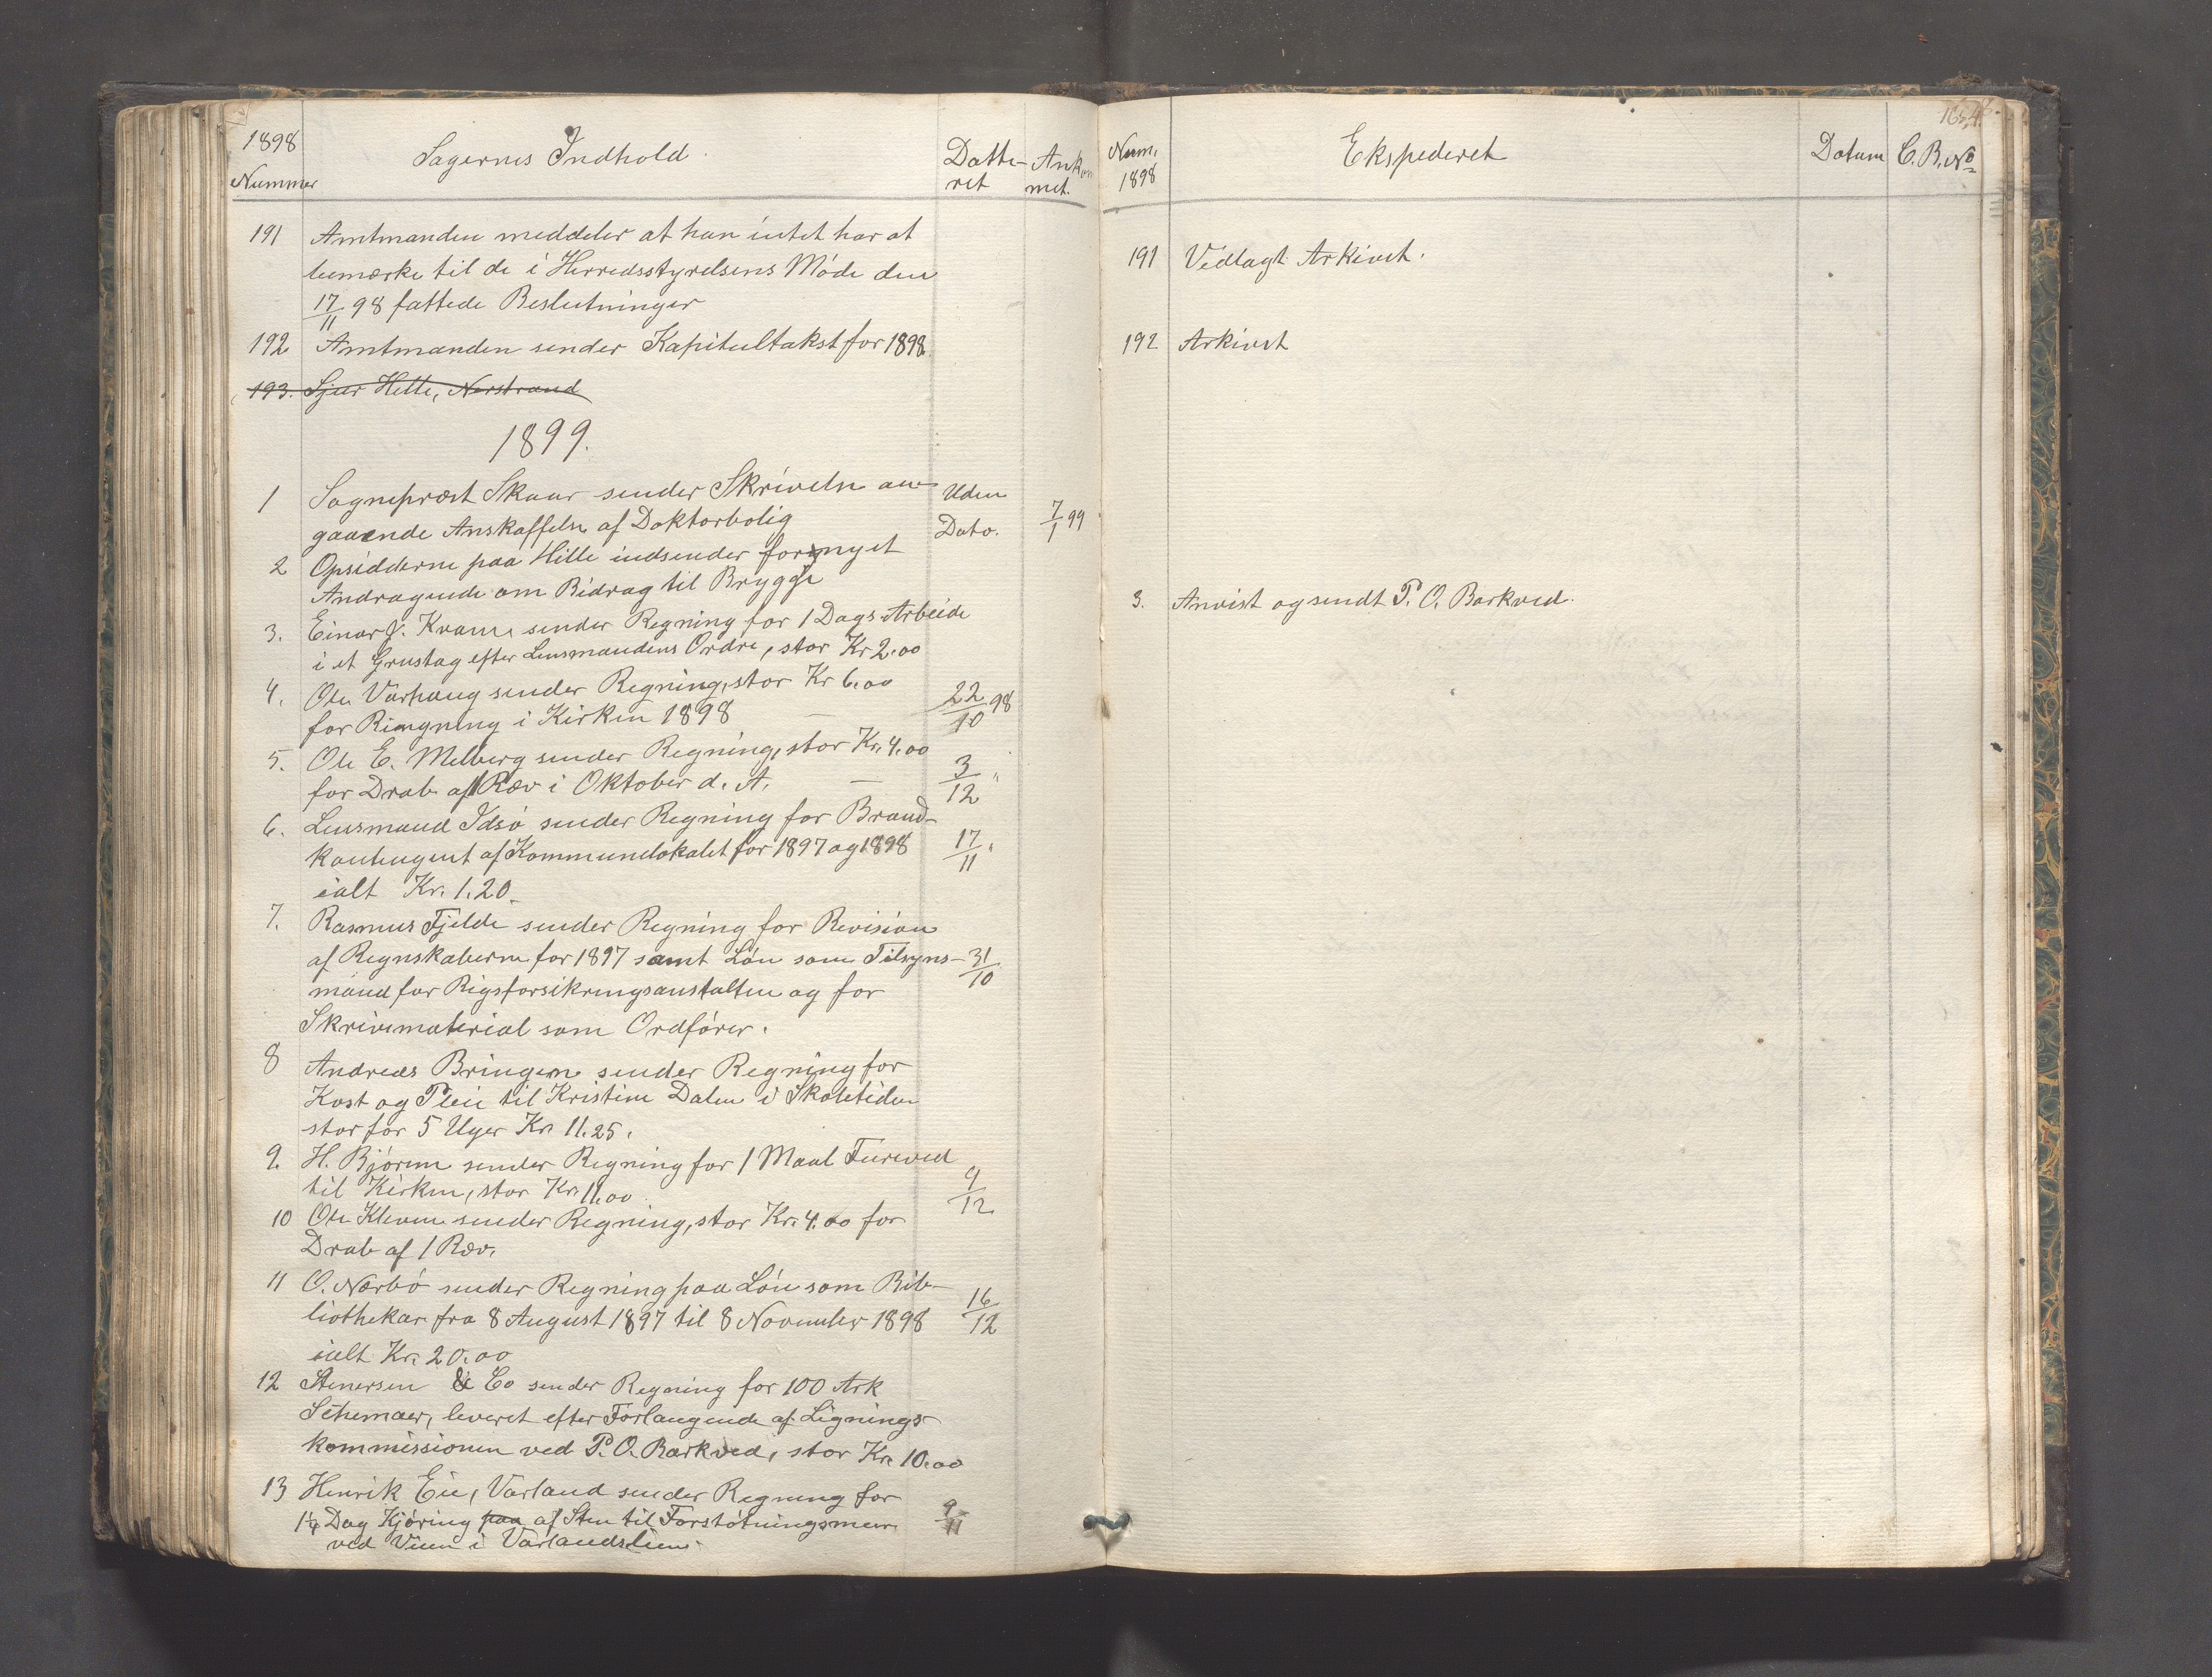 1898
Nummer
Sagernes Indhold.
Datte-
ret
Ankom
met.
191 Amtmanden meddeler at han intet har at
bemærke til de i Herredsstyrelsens Møde den
17/11 98 fattede Beslutninger
192 Amtmanden sender Kapitultakst for 1898
193. Sjur Hette, Nerstrand
1899.
1 Sogneprest Skaar sender Skrivelse an-
gaaende Anskaffelse af Doktorbolig
Uden
Dato.
7/1 99
2 Opsidderne paa Hille indsender fornyet
Andragende om Bidrag til Brygge
3. Einar J. Kvame sender Regning for 1 Dags Arbeide
i et Grustag efter Lensmandens Ordre, stor Kr 2.00
4. Ole Varhaug sender Regning, stor Kr 6.00
for Ringning i Kirken 1898 — 22/10 98
5. Ole E. Melberg sender Regning, stor Kr. 4.00
for Drab af 1 Ræv i Oktober d. A. — 3/12 "
6. Lensmand Idsø sender Regning for Brand-
kontingent af Kommunelokalet for 1897 og 1898 17/11 "
ialt Kr. 1.20.
7. Rasmus Fjelde sender Regning for Revision
af Regnskaberne for 1897 samt Løn som Tilsyns- 31/10
mand for Rigsforsikringsanstalten og for
Skrivematerial som Ordfører.
8 Andreas Bringem sender Regning for
Kost og Pleie til Kristine Dalen i Skoletiden
stor for 5 Uger Kr 11.25.
9. H. Bjørem sender Regning for 1 Maal Fureved
til Kirken, stor Kr. 11.00 9/12
10 Ole Kleven sender Regning, stor Kr. 4.00 for
Drab af 1 Ræv.
11 O. Nærbø sender Regning paa Løn som Bib-
liothekar fra 8 August 1897 til 8 November 1898 16/12
ialt Kr. 20.00
12 Stenersen & Co sender Regning for 100 Ark
Schemaer, leveret efter Forlangende af Lignings-
kommissionen ved P. O. Barkved, stor Kr. 10.00
13 Henrik Eie, Varland sender Regning for
1 1/4 Dag Kjøring paa af Sten til Forstøtningsmur 9/11
ved Veien i Varlandslien.
Num.
1898
Ekspederet
Datum
C. B. No
164.
191 Vedlagt Arkivet.
192 Arkivet
3. Anvist og sendt P. O. Barkved.